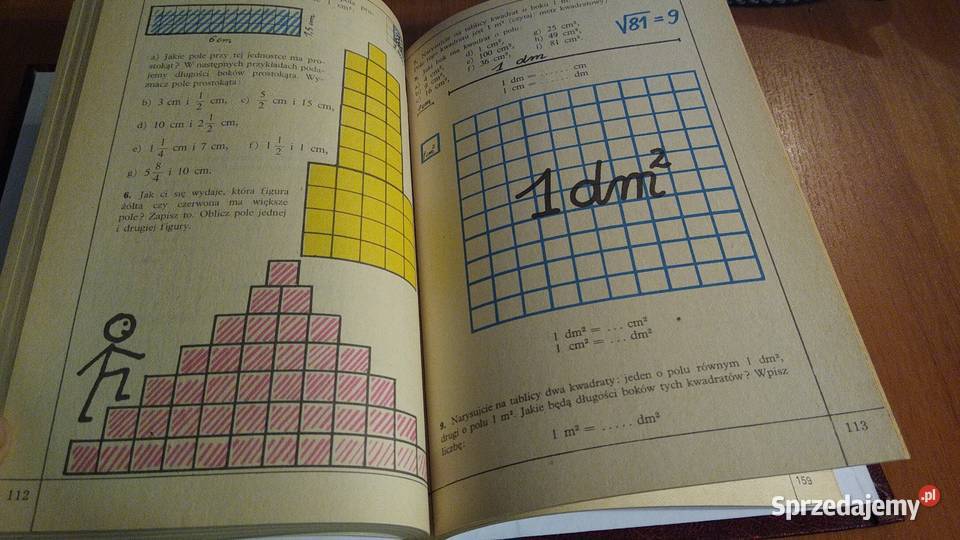 1 cm².
6 cm
a) Jakie pole przy tej jednostce ma pro-
stokąt? W następnych przykładach poda-
jemy długości boków prostokąta. Wy-
znacz pole prostokąta:
b) 3 cm i 1/2 cm, c) 5/2 cm i 15 cm,
d) 10 cm i 2 1/2 cm,
e) 1 1/4 cm i 7 cm, f) 1 1/2 i 1 cm,
g) 5 8/4 i 10 cm.
6. Jak ci się wydaje, która figura
żółta czy czerwona ma większe
pole? Zapisz to. Oblicz pole jednej
i drugiej figury.
112
Narysujcie na tablicy kwadrat o boku 1 m.
kwadratu jest 1 m² (czytaj: metr kwadratowy)
bok ma kwadrat o polu:
d) 1 cm², g) 25 cm²,
4 cm², e) 100 cm², h) 49 cm²,
16 cm², f) 36 cm², i) 81 cm².
√81 = 9
1 dm
1 dm = ...... cm
1 cm = ...... dm
1 cm²
1 dm²
1 dm² = ... cm²
1 cm² = ... dm²
9. Narysujcie na tablicy dwa kwadraty: jeden o polu równym 1 dm²,
drugi o polu 1 m². Jakie będą długości boków tych kwadratów? Wpisz
liczbę:
1 m² = ..... dm²
113
159
Sprzedajemy.pl